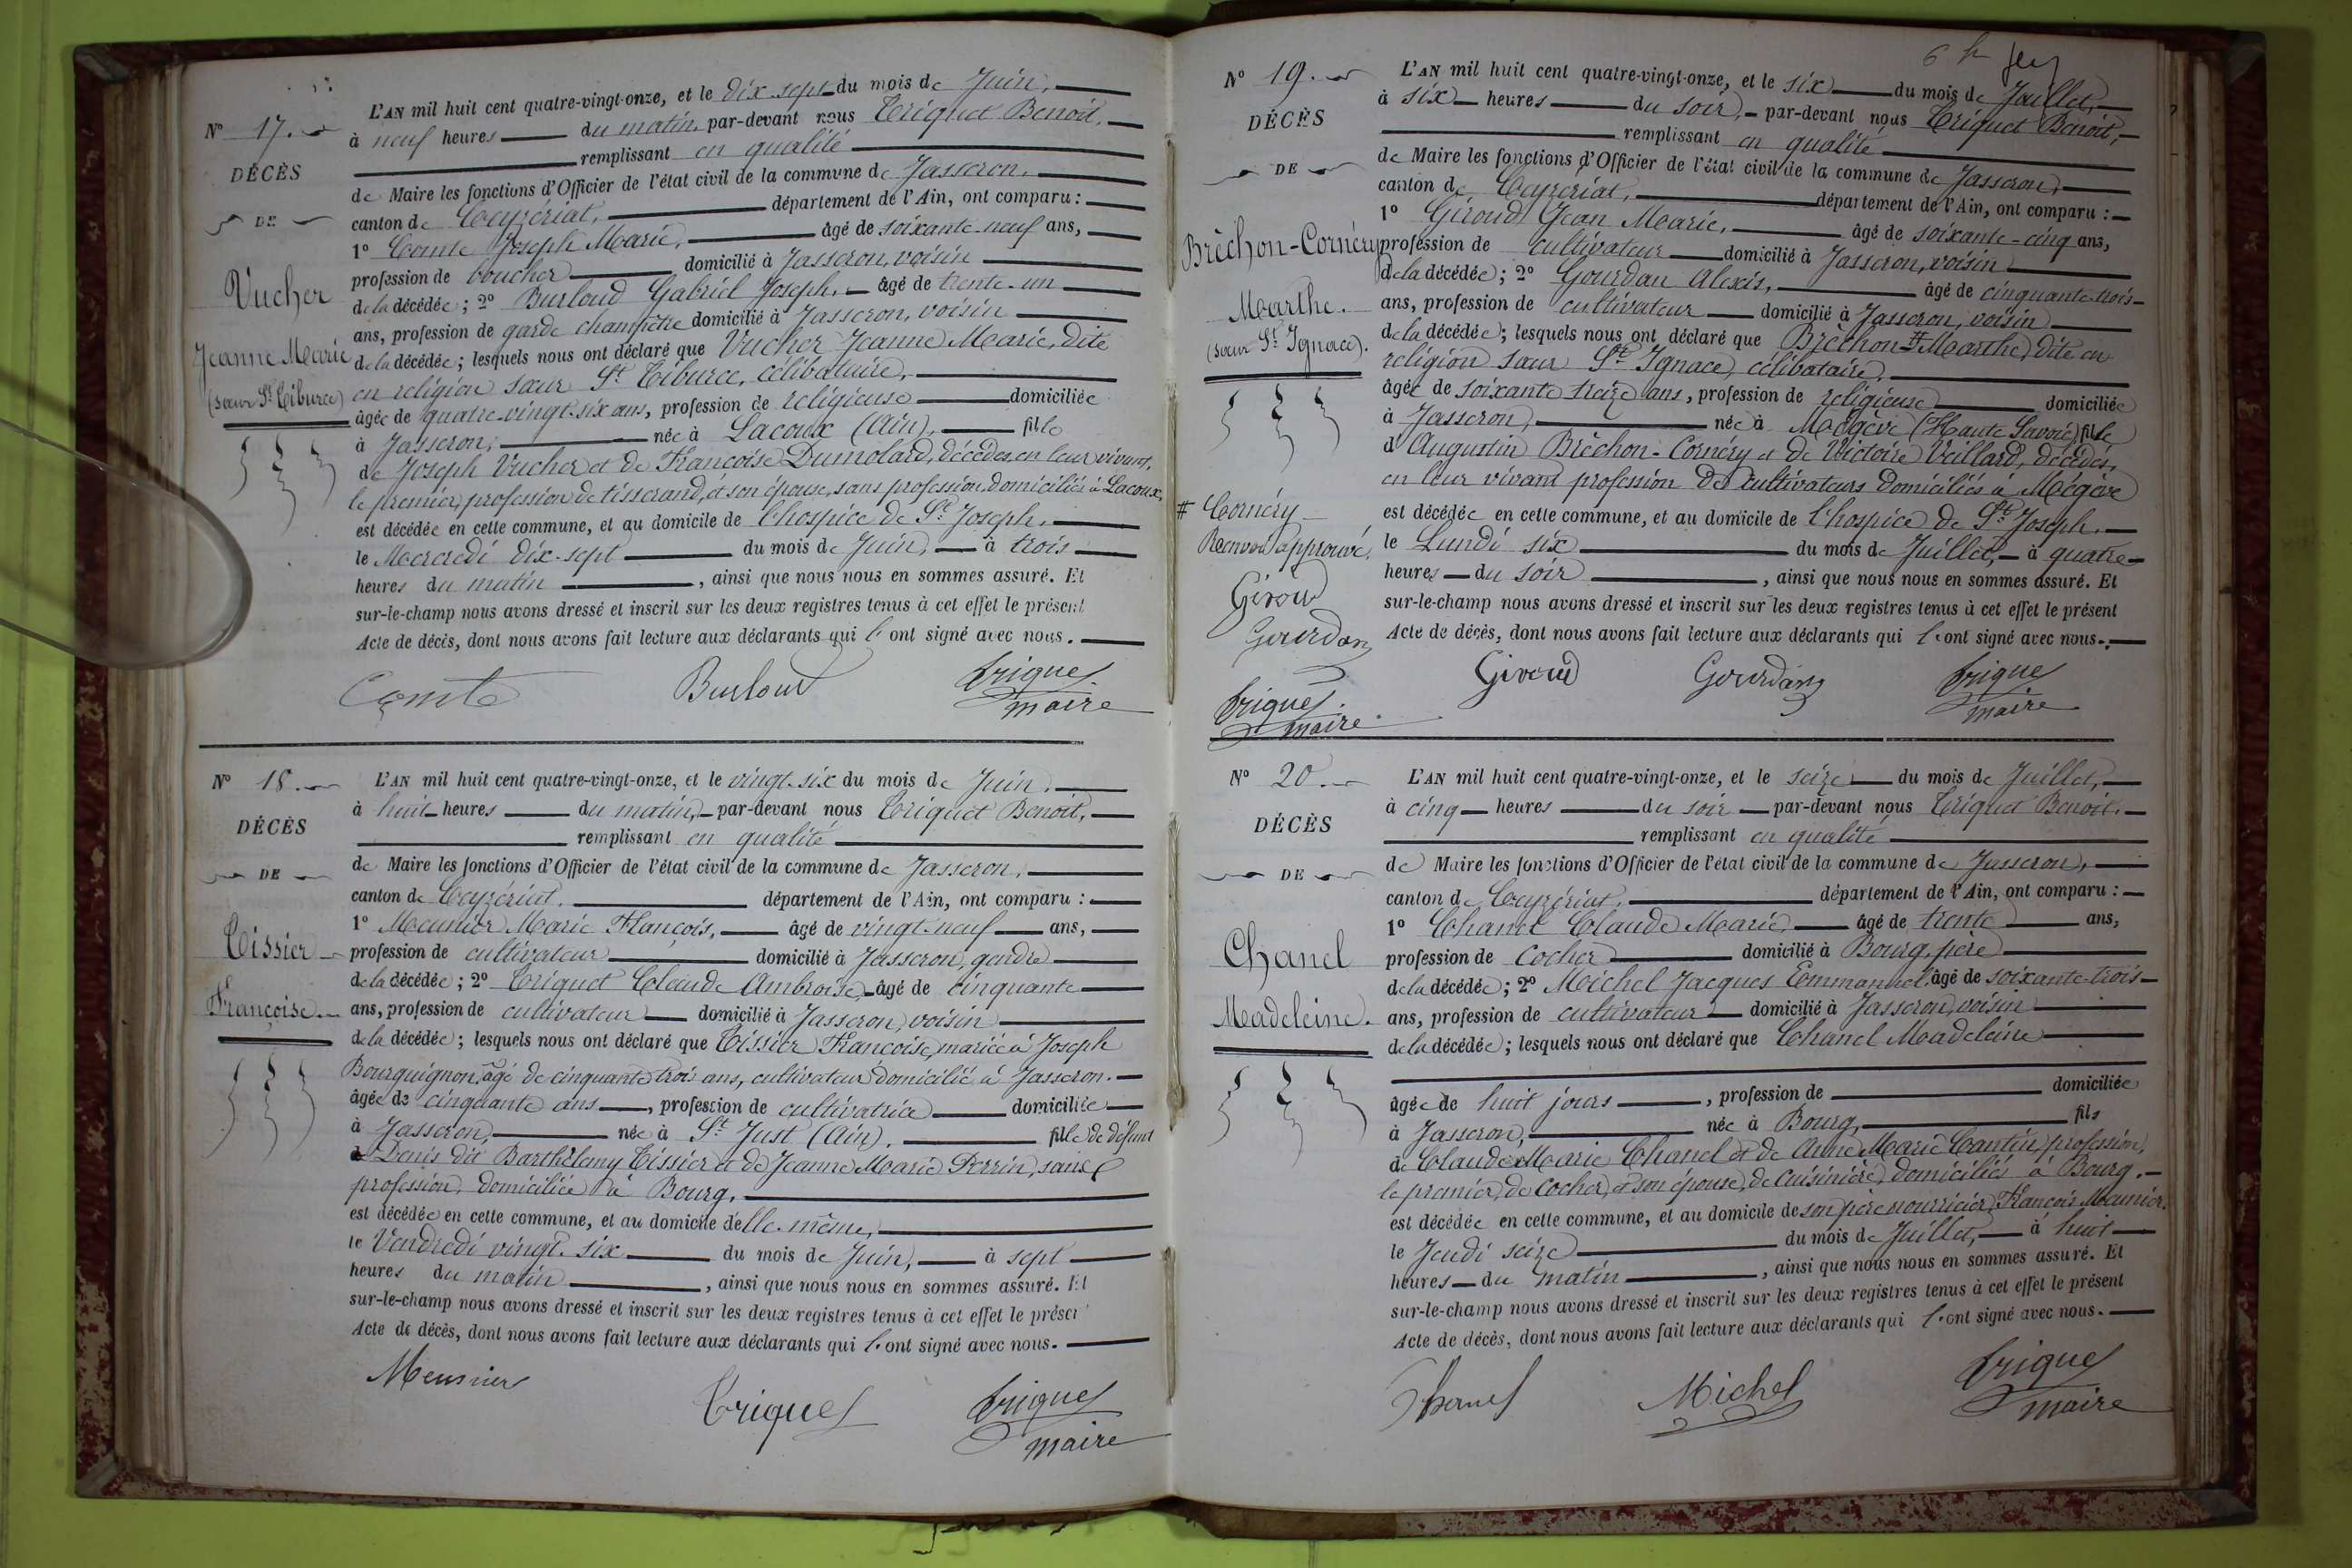 N° 17.
DÉCÈS
DE
Vucher
Jeanne Marie
(sœur St Tiburce)
L'AN mil huit cent quatre-vingt-onze, et le dix sept du mois de Juin,
à neuf heures du matin, par-devant nous Triquet Benoit,
remplissant en qualité
de Maire les fonctions d'Officier de l'état civil de la commune de Jasseron,
canton de Ceyzériat, département de l'Ain, ont comparu :
1° Comte Joseph Marie, âgé de soixante-neuf ans,
profession de boucher domicilié à Jasseron, voisin
de la décédée ; 2° Burloud Gabriel Joseph, âgé de trente-un
ans, profession de garde champêtre domicilié à Jasseron, voisin
de la décédée ; lesquels nous ont déclaré que Vucher Jeanne Marie, dite
en religion sœur St Tiburce, célibataire,
âgée de quatre-vingt-six ans, profession de religieuse domiciliée
à Jasseron, née à Lacoux (Ain), fille
de Joseph Vucher et de Françoise Dumolard, décédés, en leur vivant,
le premier, profession de tisserand, et son épouse, sans profession, domiciliés à Lacoux,
est décédée en cette commune, et au domicile de l'hospice de St Joseph,
le Mercredi dix-sept du mois de Juin, à trois
heures du matin, ainsi que nous nous en sommes assuré. Et
sur-le-champ nous avons dressé et inscrit sur les deux registres tenus à cet effet le présent
Acte de décès, dont nous avons fait lecture aux déclarants qui l'ont signé avec nous.
Comte Burloud Triquet
maire
N° 18.
DÉCÈS
DE
Tissier
Françoise.
L'AN mil huit cent quatre-vingt-onze, et le vingt-six du mois de Juin,
à huit heures du matin, par-devant nous Triquet Benoit,
remplissant en qualité
de Maire les fonctions d'Officier de l'état civil de la commune de Jasseron,
canton de Ceyzériat, département de l'Ain, ont comparu :
1° Meunier Marie François, âgé de vingt-neuf ans,
profession de cultivateur domicilié à Jasseron, gendre
de la décédée ; 2° Triquet Claude Ambroise, âgé de cinquante
ans, profession de cultivateur domicilié à Jasseron, voisin
de la décédée ; lesquels nous ont déclaré que Tissier Françoise, mariée à Joseph
Bourguignon, âgé de cinquante trois ans, cultivateur domicilié à Jasseron.
âgée de cinquante ans, profession de cultivatrice domiciliée
à Jasseron, née à St Just (Ain), fille de défunt
Denis dit Barthélemy Tissier et de Jeanne Marie Perrin, sans
profession, domiciliée à Bourg,
est décédée en cette commune, et au domicile d'elle-même,
le Vendredi vingt-six du mois de Juin, à sept
heures du matin, ainsi que nous nous en sommes assuré. Et
sur-le-champ nous avons dressé et inscrit sur les deux registres tenus à cet effet le présent
Acte de décès, dont nous avons fait lecture aux déclarants qui l'ont signé avec nous.
Meunier Triquet Triquet
maire
N° 19.
DÉCÈS
DE
Brèchon-Cornéry
Marthe.
(sœur St Ignace).
# Cornéry
Renvoi approuvé,
Giroud
Gourdan
Triquet
maire
L'AN mil huit cent quatre-vingt-onze, et le six du mois de Juillet,
à six heures du soir, par-devant nous Triquet Benoit,
remplissant en qualité
de Maire les fonctions d'Officier de l'état civil de la commune de Jasseron,
canton de Ceyzériat, département de l'Ain, ont comparu :
1° Giroud Jean Marie, âgé de soixante-cinq ans,
profession de cultivateur domicilié à Jasseron, voisin
de la décédée ; 2° Gourdan Alexis, âgé de cinquante-trois
ans, profession de cultivateur domicilié à Jasseron, voisin
de la décédée ; lesquels nous ont déclaré que Brèchon # Marthe, dite en
religion sœur St Ignace, célibataire,
âgée de soixante treize ans, profession de religieuse domiciliée
à Jasseron, née à Mégève (Haute Savoie) fille
d'Augustin Brèchon-Cornéry et de Victoire Veillard, décédés,
en leur vivant profession de cultivateurs domiciliés à Mégève
est décédée en cette commune, et au domicile de l'hospice de St Joseph,
le Lundi six du mois de Juillet, à quatre
heures du soir, ainsi que nous nous en sommes assuré. Et
sur-le-champ nous avons dressé et inscrit sur les deux registres tenus à cet effet le présent
Acte de décès, dont nous avons fait lecture aux déclarants qui l'ont signé avec nous.
Giroud Gourdan Triquet
maire
N° 20.
DÉCÈS
DE
Chanel
Madeleine.
L'AN mil huit cent quatre-vingt-onze, et le seize du mois de Juillet,
à cinq heures du soir par-devant nous Triquet Benoit,
remplissant en qualité
de Maire les fonctions d'Officier de l'état civil de la commune de Jasseron,
canton de Ceyzériat, département de l'Ain, ont comparu :
1° Chanel Claude Marie, âgé de trente ans,
profession de cocher domicilié à Bourg, père
de la décédée ; 2° Michel Jacques Emmanuel, âgé de soixante-trois
ans, profession de cultivateur domicilié à Jasseron, voisin
de la décédée ; lesquels nous ont déclaré que Chanel Madeleine
âgée de huit jours, profession de domiciliée
à Jasseron, née à Bourg, fils
de Claude Marie Chanel et de Anne Marie Cantin, profession,
le premier, de cocher, et son épouse, de cuisinière, domiciliés à Bourg.
est décédée en cette commune, et au domicile de son père nourricier, François Meunier.
le Jeudi seize du mois de Juillet, à huit
heures du matin, ainsi que nous nous en sommes assuré. Et
sur-le-champ nous avons dressé et inscrit sur les deux registres tenus à cet effet le présent
Acte de décès, dont nous avons fait lecture aux déclarants qui l'ont signé avec nous.
Chanel Michel Triquet
maire